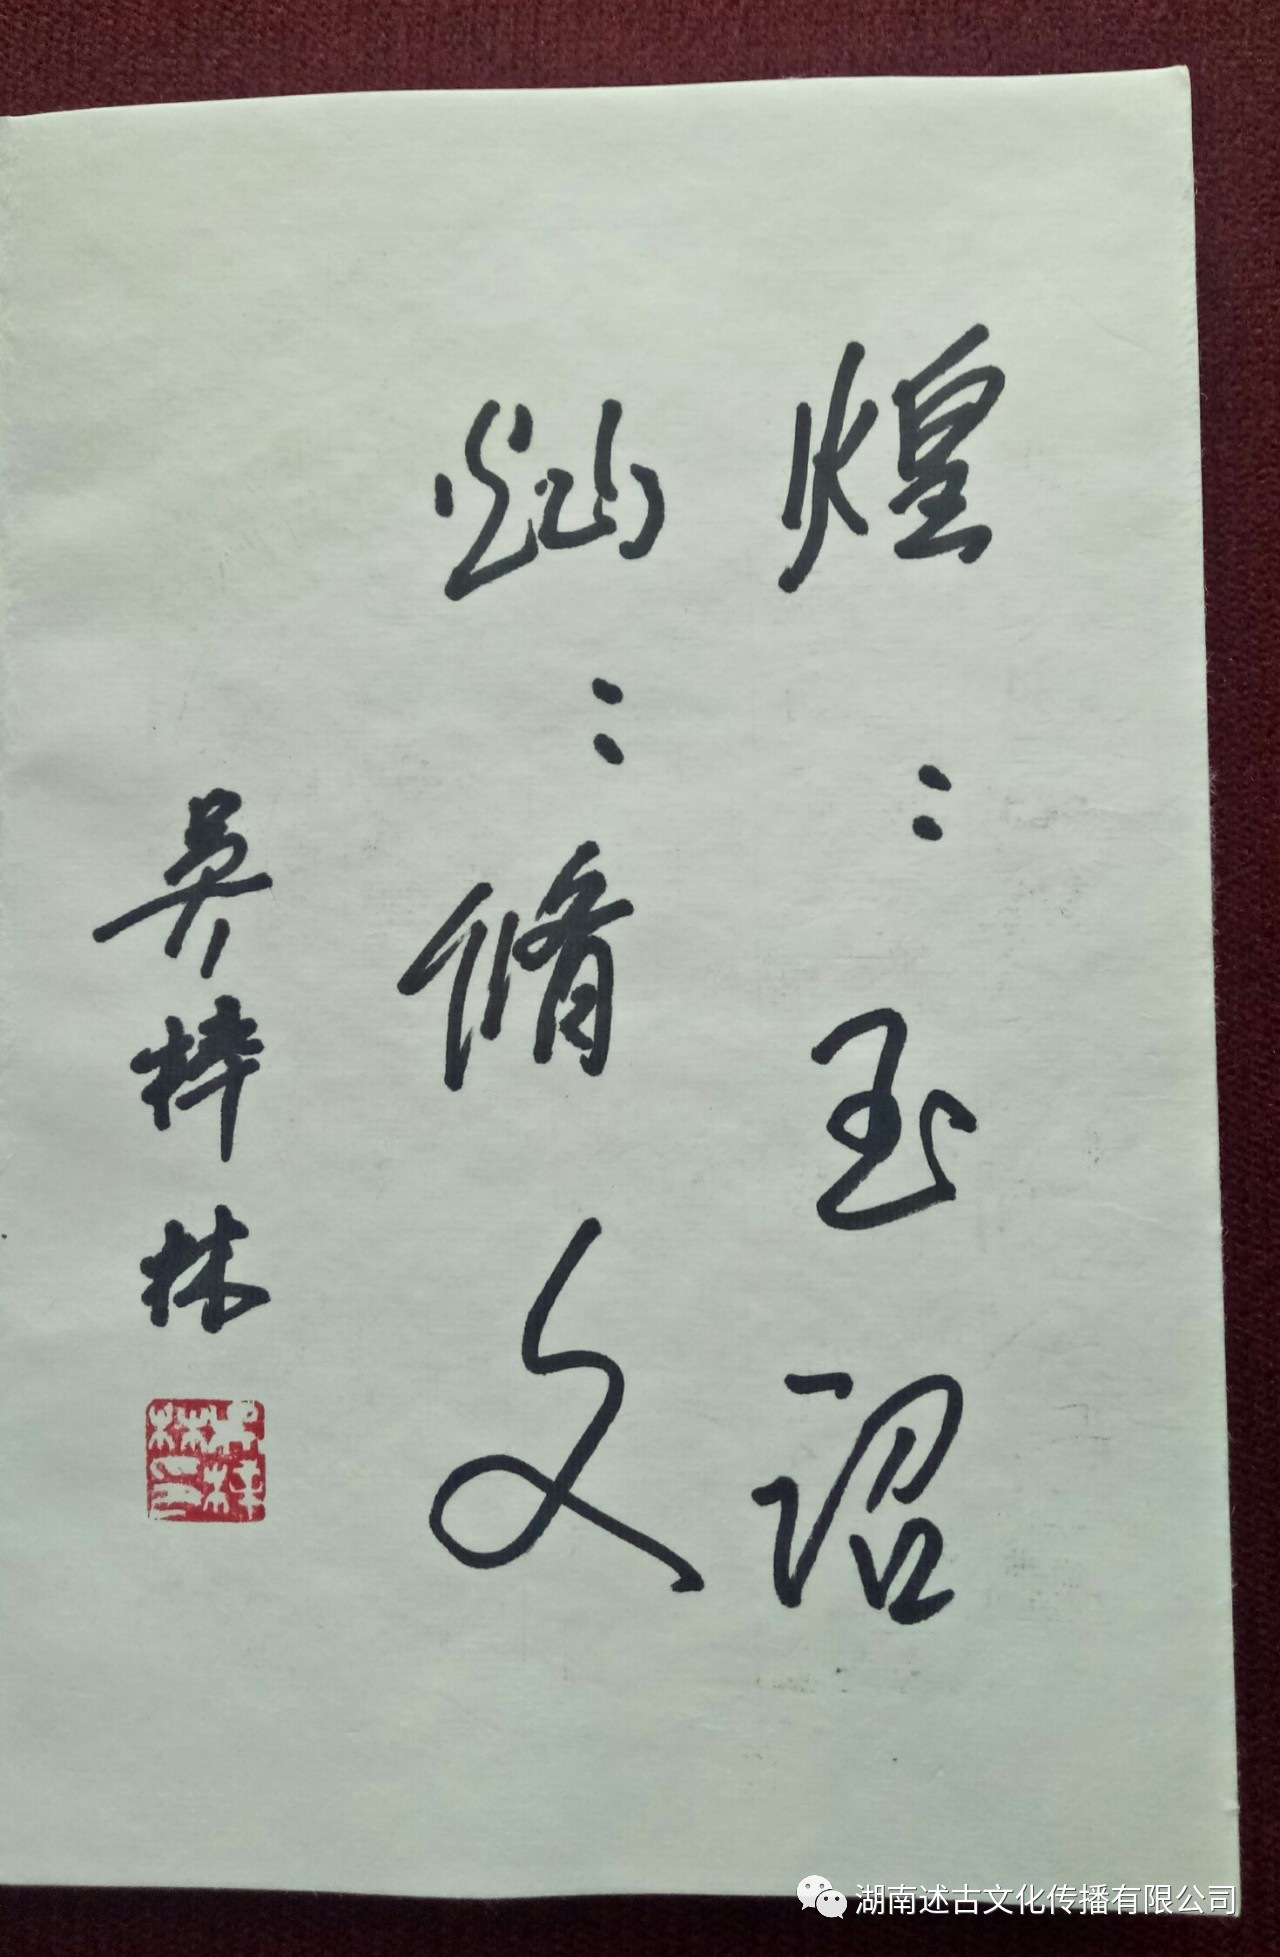 煌：玉诏
灿：脩文
吴梓林
湖南述古文化传播有限公司